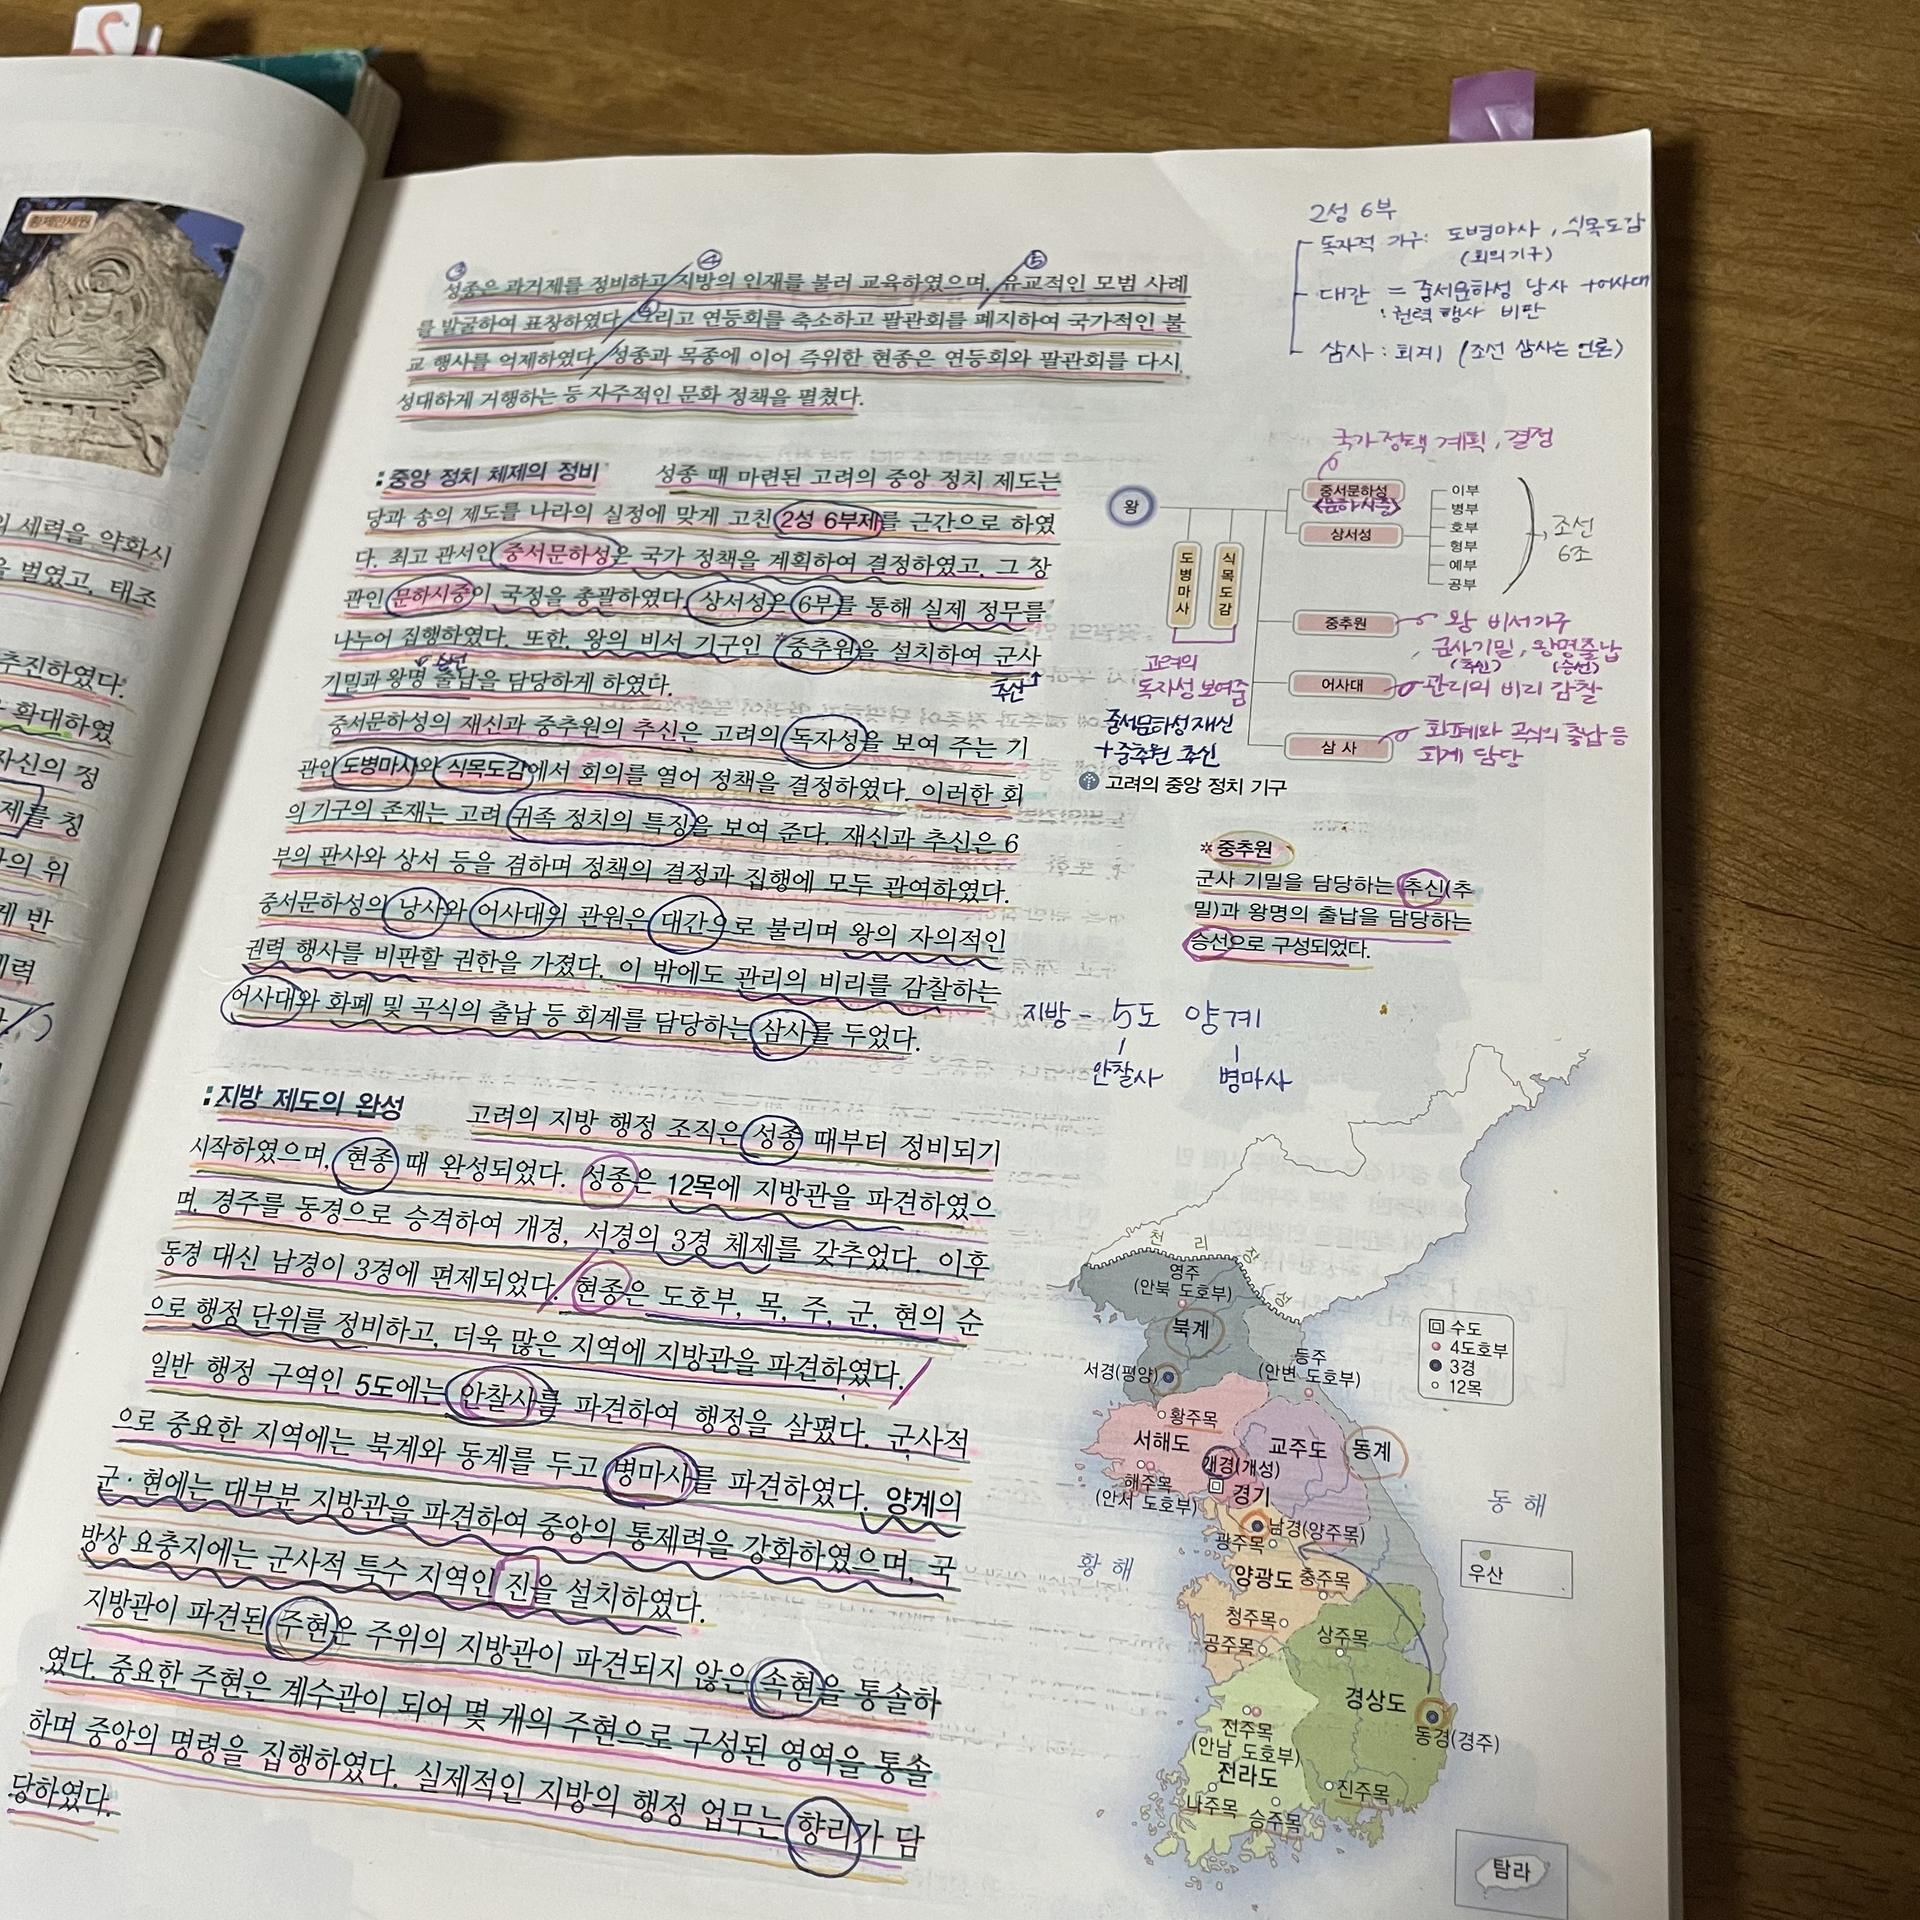 황제만세원
의 세력을 약화시
을 벌였고, 태조
추진하였다.
확대하였
자신의 정
제를 칭
의 위
게 반
세력
③ ④ ⑤
성종은 과거제를 정비하고 지방의 인재를 불러 교육하였으며, 유교적인 모범 사례
를 발굴하여 표창하였다. 그리고 연등회를 축소하고 팔관회를 폐지하여 국가적인 불
교 행사를 억제하였다. 성종과 목종에 이어 즉위한 현종은 연등회와 팔관회를 다시
성대하게 거행하는 등 자주적인 문화 정책을 펼쳤다.
2성 6부
독자적 기구: 도병마사, 식목도감
(회의기구)
대간 = 중서문하성 낭사 + 어사대
: 권력 행사 비판
삼사 : 회계 (조선 삼사는 언론)
중앙 정치 체제의 정비 성종 때 마련된 고려의 중앙 정치 제도는
당과 송의 제도를 나라의 실정에 맞게 고친 2성 6부제를 근간으로 하였
다. 최고 관서인 중서문하성은 국가 정책을 계획하여 결정하였고, 그 장
관인 문하시중이 국정을 총괄하였다. 상서성은 6부를 통해 실제 정무를
나누어 집행하였다. 또한, 왕의 비서 기구인 *중추원을 설치하여 군사
승선
기밀과 왕명 출납을 담당하게 하였다.
추신
중서문하성의 재신과 중추원의 추신은 고려의 독자성을 보여 주는 기
관인 도병마사와 식목도감에서 회의를 열어 정책을 결정하였다. 이러한 회
의 기구의 존재는 고려 귀족 정치의 특징을 보여 준다. 재신과 추신은 6
부의 판사와 상서 등을 겸하며 정책의 결정과 집행에 모두 관여하였다.
중서문하성의 낭사와 어사대의 관원은 대간으로 불리며 왕의 자의적인
권력 행사를 비판할 권한을 가졌다. 이 밖에도 관리의 비리를 감찰하는
어사대와 화폐 및 곡식의 출납 등 회계를 담당하는 삼사를 두었다.
국가정책 계획, 결정
왕
중서문하성
<문하시중>
상서성
이부
병부
호부
형부
예부
공부
조선
6조
도병마사
식목도감
중추원
왕 비서기구
군사기밀, 왕명출납
(추신) (승선)
어사대
관리의 비리 감찰
삼사
화폐와 곡식의 출납 등
회계 담당
고려의
독자성 보여줌
중서문하성 재신
+ 중추원 추신
고려의 중앙 정치 기구
*중추원
군사 기밀을 담당하는 추신(추
밀)과 왕명의 출납을 담당하는
승선으로 구성되었다.
지방 - 5도 양계
안찰사 병마사
지방 제도의 완성 고려의 지방 행정 조직은 성종 때부터 정비되기
시작하였으며, 현종 때 완성되었다. 성종은 12목에 지방관을 파견하였으
며, 경주를 동경으로 승격하여 개경, 서경의 3경 체제를 갖추었다. 이후
동경 대신 남경이 3경에 편제되었다. 현종은 도호부, 목, 주, 군, 현의 순
으로 행정 단위를 정비하고, 더욱 많은 지역에 지방관을 파견하였다.
일반 행정 구역인 5도에는 안찰사를 파견하여 행정을 살폈다. 군사적
으로 중요한 지역에는 북계와 동계를 두고 병마사를 파견하였다. 양계의
군·현에는 대부분 지방관을 파견하여 중앙의 통제력을 강화하였으며, 국
방상 요충지에는 군사적 특수 지역인 진을 설치하였다.
지방관이 파견된 주현은 주위의 지방관이 파견되지 않은 속현을 통솔하
였다. 중요한 주현은 계수관이 되어 몇 개의 주현으로 구성된 영역을 통솔
하며 중앙의 명령을 집행하였다. 실제적인 지방의 행정 업무는 향리가 담
당하였다.
천리장성
영주
(안북 도호부)
북계
서경(평양)
등주
(안변 도호부)
수도
4도호부
3경
12목
황주목
서해도
교주도
동계
개경(개성)
해주목
(안서 도호부)
경기
남경(양주목)
광주목
동해
황해
우산
양광도
충주목
청주목
공주목
상주목
경상도
동경(경주)
전주목
(안남 도호부)
전라도
진주목
나주목
승주목
탐라